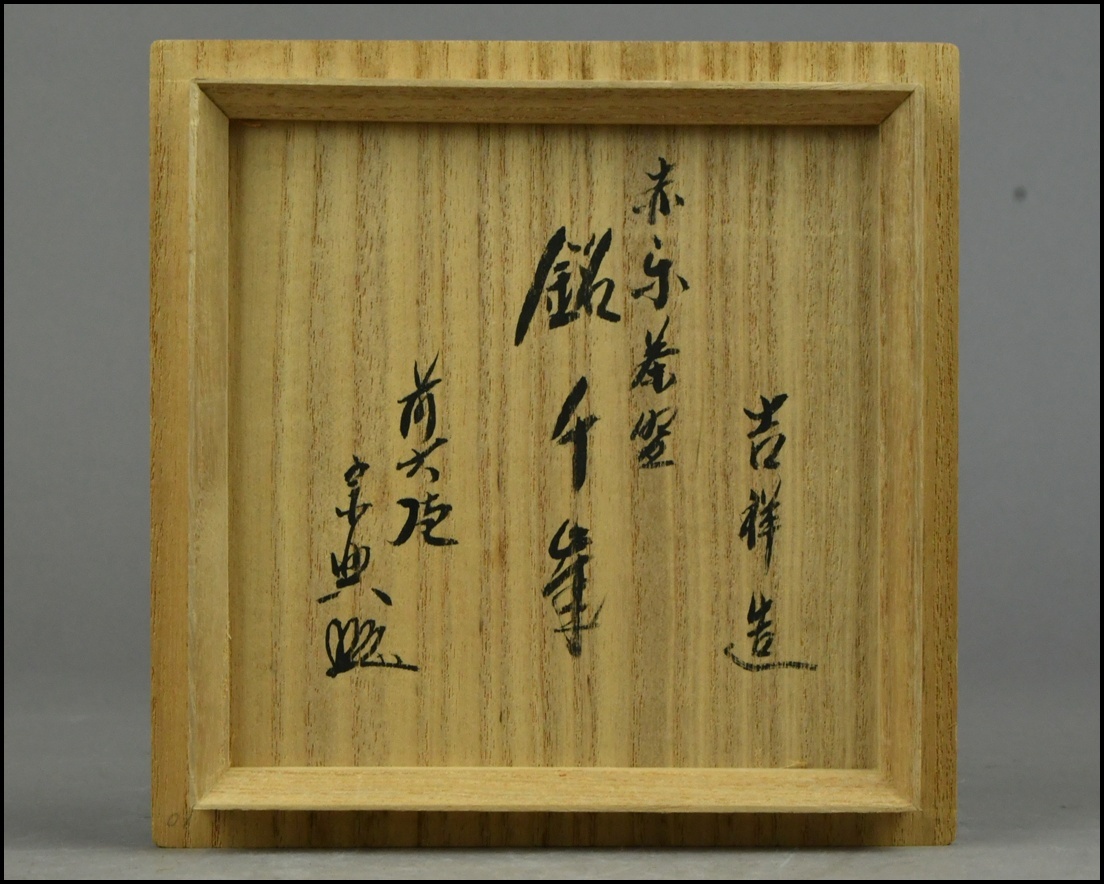 吉祥造
赤楽茶盌
銘 千峯
前大徳
宗興